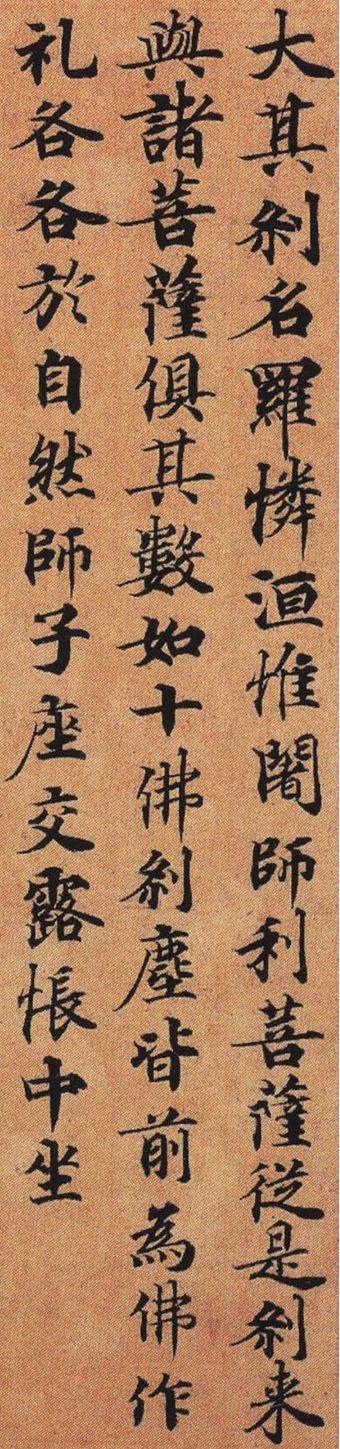 大其刹名羅憐洹惟闍師利菩薩從是刹来
與諸菩薩俱其數如十佛刹塵皆前為佛作
礼各各於自然師子座交露悵中坐